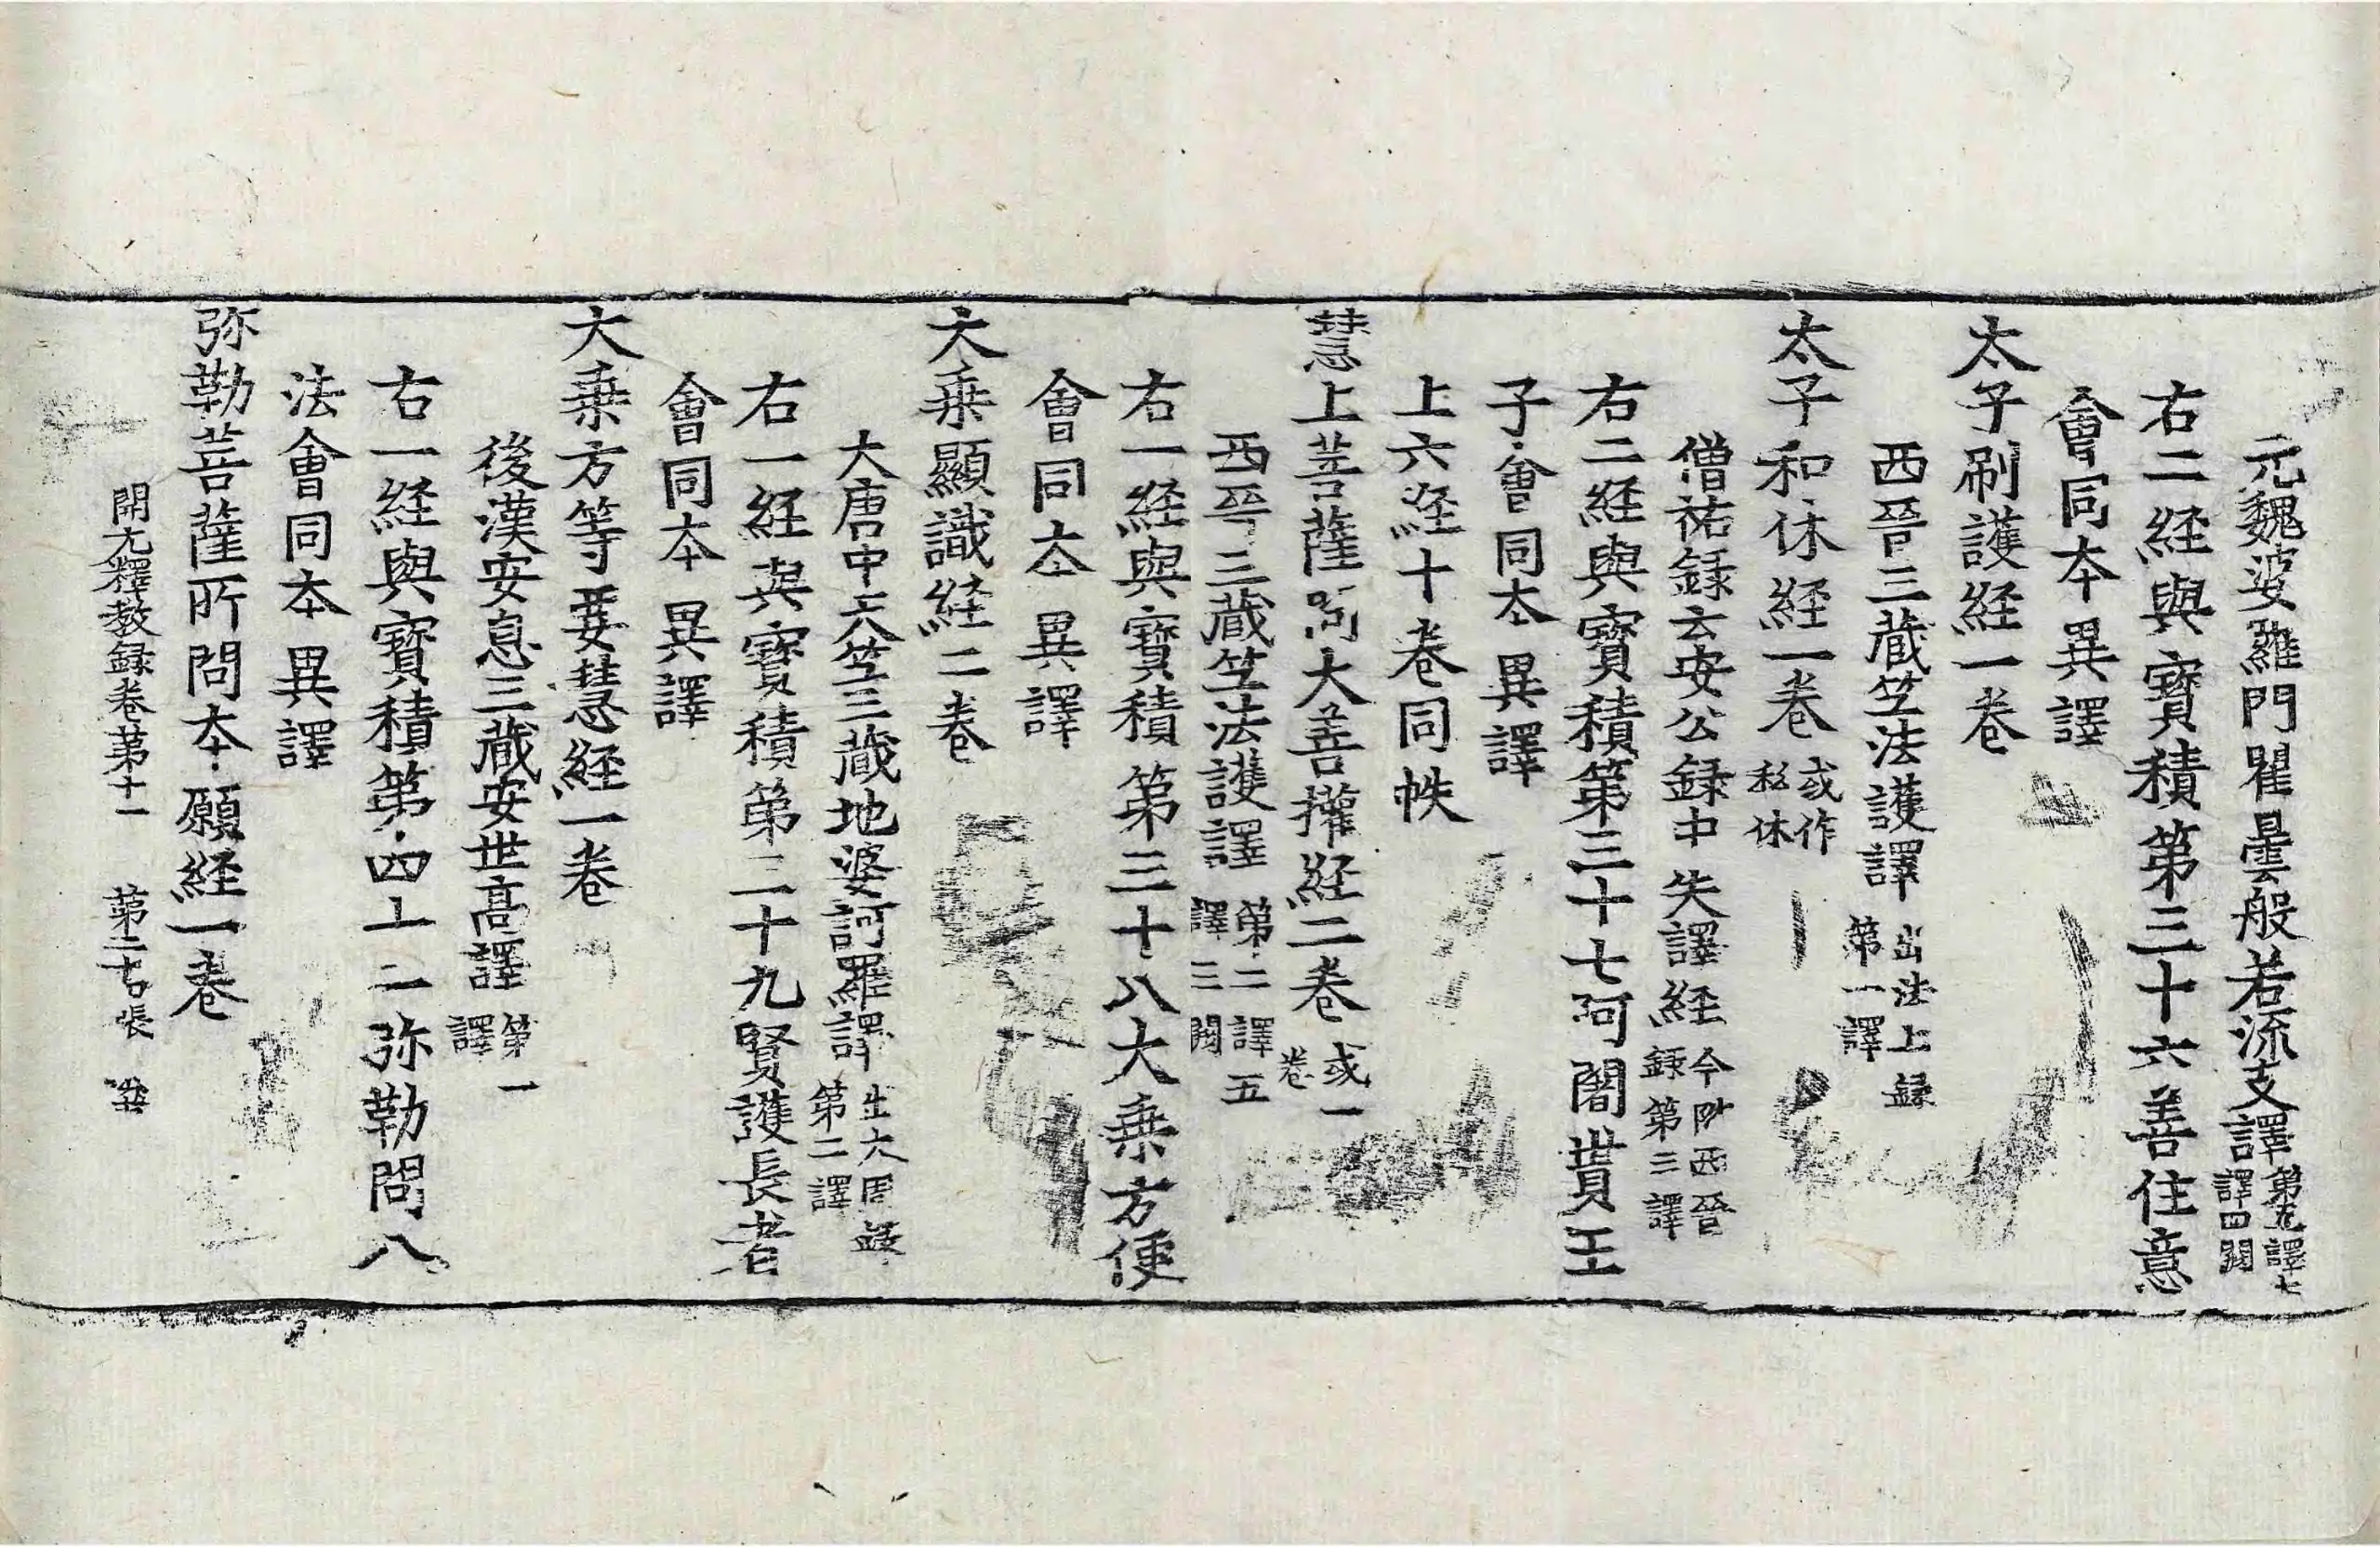 元魏婆羅門瞿曇般若流支譯第五譯七譯四闕
右二経與寳積第三十六善住意
會同本異譯
太子刷護経一卷
西晉三藏笁法護譯出法上録第一譯
太子和休経一卷或作私休
僧祐録云安公録中失譯経今附西晉録第三譯
右二経與寳積第三十七阿闍貰王
子會同本異譯
上六経十卷同帙
慧上菩薩問大善權経二卷或一卷
西晉三藏笁法護譯第二譯五譯三闕
右一経與寳積第三十八大乗方便
會同本異譯
大乗顯識経二卷
大唐中天笁三藏地婆訶羅譯出大周録第二譯
右一経與寳積第三十九賢護長者
會同本異譯
大乗方等要慧経一卷
後漢安息三藏安世高譯第一譯
右一経與寳積第四十二弥勒問八
法會同本異譯
弥勒菩薩所問本願経一卷
開元釋教録卷第十一 第二十張